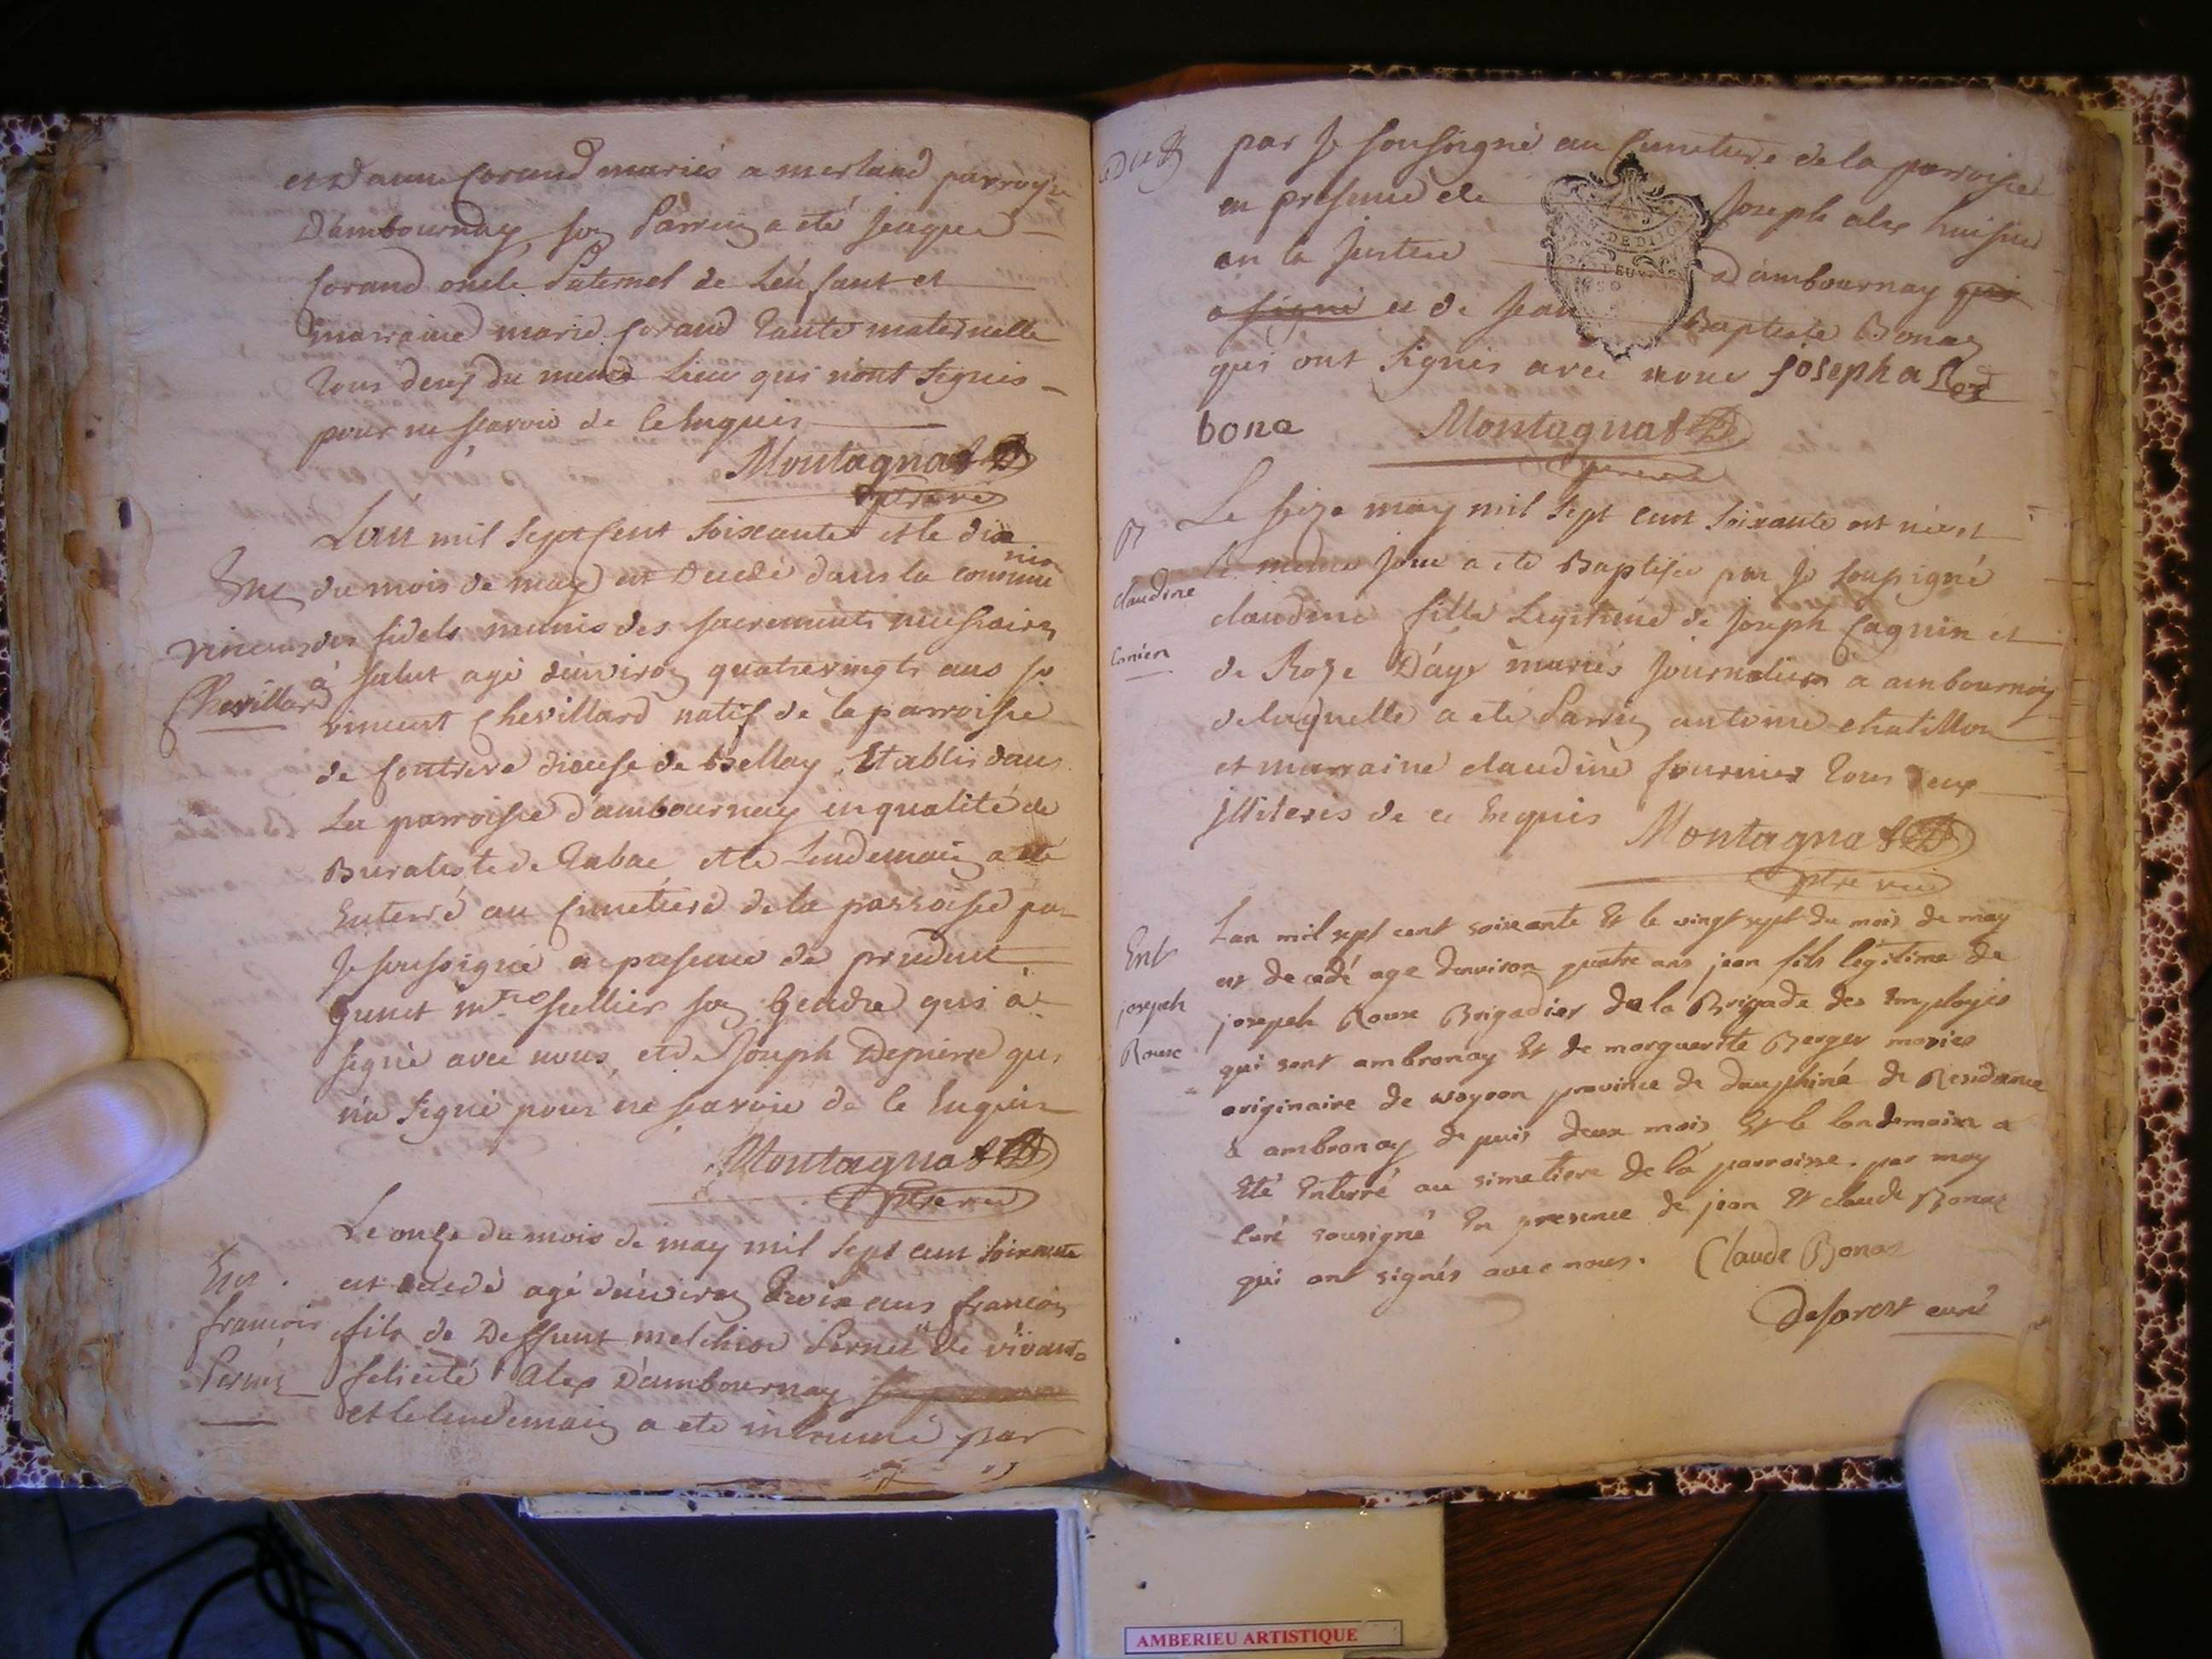 et D'anne Corand mariés a merland parroisse
D'ambournay, son Parrin a eté Jacques
Corand oncle Paternel de L'enfant et
marraine marie Corand Tante maternelle
Tous deux du meme Lieu qui n'ont signés
pour ne sçavoir de ce Enquis
Montagnat
ptre vic
L'an mil sept Cent soixante et le dix
du mois de may est Decedé dans la commu
nion
Ent
vincent
Chevillard
des fidels munis des sacrements necessaires
à salut agé d'environ quatrevingts ans sr
vincent Chevillard natif de la parroisse
de diocese de Bellay Etablis dans
La parroisse d'ambournay en qualité de
Buraliste de Tabac et le Lendemain a eté
Enterré au Cimetiere de la parroisse par
Je soussigné en presence de prudent
Gunet mtre sellier son Gendre qui a
signé avec nous, et de Joseph Depierre qui
n'a signé pour ne sçavoir de ce Enquis
Montagnat
ptre vic
Le onze du mois de may mil sept cent soixante
Ent.
francois
Pernet
est decedé agé d'environ Trois ans francois
fils de Deffunt melchior Pernet et de vivante
felicité Alex D'ambournay
et le lendemain a eté inhumé par
par Je soussigné au Cimetiere de la parroisse
en presence de Joseph alex huissier
en la Justice D'ambournay qui
a signé et de Jean Baptiste Bonaz
qui ont signés avec nous Joseph alex
bona Montagnat
ptre vic
DE DIJON
Le seize may mil sept cent soixante est née et
B
claudine
le meme jour a eté Baptisée par Je soussigné
claudine fille Legitime de Joseph Cagnin et
de Roze D'Age mariés Journaliers a ambournay
de laquelle a eté Parrin antoine chatillon
et marraine claudine fournier Tous deux
Illiterés de ce Enquis Montagnat
ptre vic
Ent
joseph
Roux
Lan mil sept cent soixante Et le vingt sept du mois de may
est decedé age denviron quatre ans jean fils legitime de
joseph Roux Brigadier de la Brigade des Employés
qui sont ambronay Et de marguerite Berger maries
originaire de province de dauphiné de Residance
à ambronay depuis deux mois Et le landemain a
Eté Enterré au simetiere de la parroisse. par moy
Curé sousigné En presence de jean Et claude Bonaz
qui ont signés avec nous. Claude Bonaz
deforest curé
AMBERIEU ARTISTIQUE